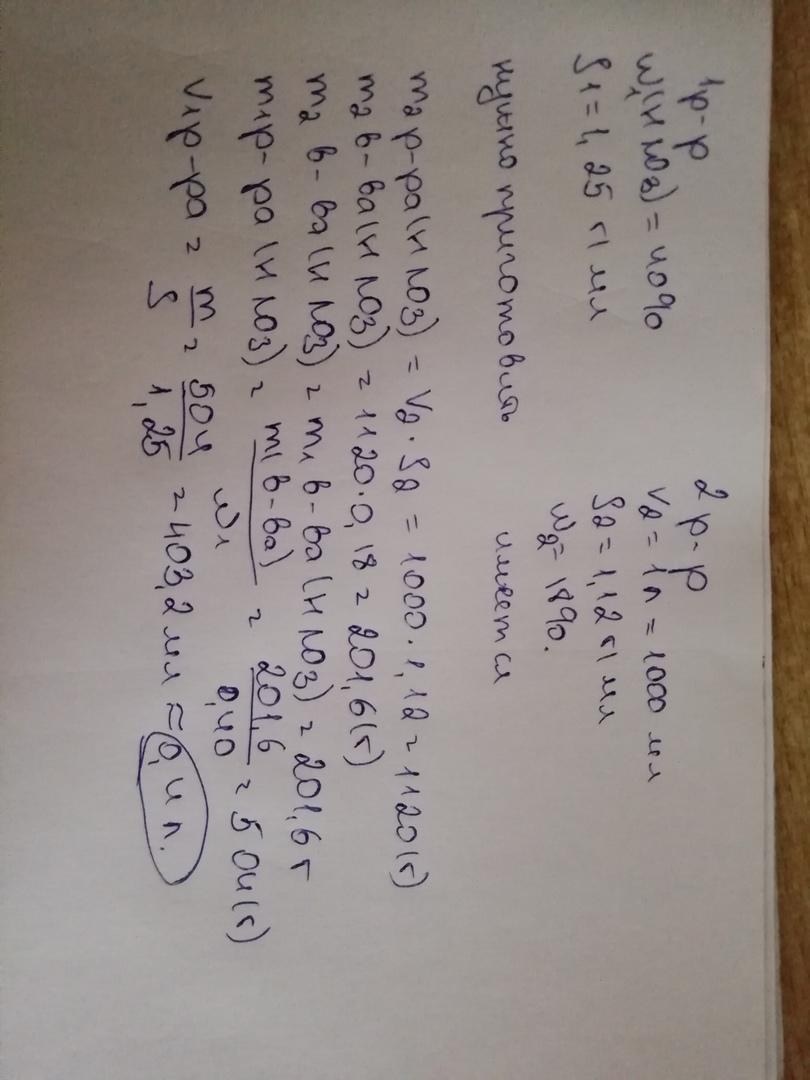 1р-р
W1(HNO3) = 40%
ρ1 = 1,25 г/мл
2 р-р
V2 = 1л = 1000 мл
ρ2 = 1,12 г/мл
W2 = 18%.
нужно приготовить имеется
m2 р-ра(HNO3) = V2 · ρ2 = 1000 · 1,12 = 1120(г)
m2 в-ва(HNO3) = 1120 · 0,18 = 201,6(г)
m2 в-ва(HNO3) = m1 в-ва(HNO3) = 201,6 г
m1р-ра(HNO3) = m(в-ва)/W1 = 201,6/0,40 = 504(г)
V1р-ра = m/ρ = 504/1,25 = 403,2 мл ≈ 0,4 л.